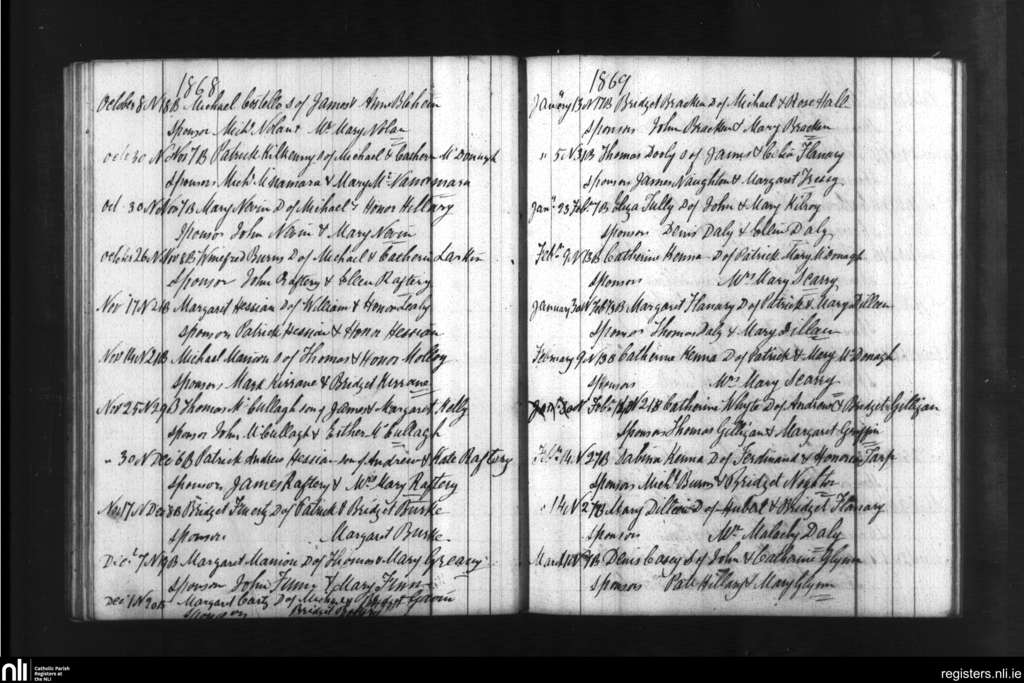 1868
October 8 N 18 B Michael Costello S of James & Ann Bleheen
Sponsor Michl Nolan & Mrs Mary Nolan
Octr 30 N Nov 7 B Patrick Kilkenny S of Michael & Cathern McDonagh
Sponsors Michl McNamara & Mary McNamara
Oct 30 N Nov 7 B Mary Nevin D of Michael & Honor Hillary
Sponsor John Nevin & Mary Nevin
October 26 N Nov 8 B Winefred Burns D of Michael & Catherine Larkin
Sponsor John Raftery & Ellen Raftery
Nov 17 N 21 B Margaret Hessian D of William & Honor
Sponsors Patrick Hessian & Honor Hessian
Nov 14 N 21 B Michael Manion S of Thomas & Honor Molloy
Sponsors Mark Kirrane & Bridget Kirrane
Nov 25 N 29 B Thomas McCullagh son of James & Margaret Kelly
Sponsor John McCullagh & Esther McCullagh
" 30 N Dec 6 B Patrick Andrew Hessian son of Andrew & Kate Raftery
Sponsors James Raftery & Mrs Mary Raftery
Nov 17 N Dec 8 B Bridget Feverty D of Patrick & Bridget Burke
Sponsor Margaret Burke
Decr 7 N 19 B Margaret Manion D of Thomas & Mary Greany
Sponsors John Finn & Mary Finn
Decr N 20 B Margaret Carty D of Michael & Bridget Gavin
Sponsor Bridget
1869
January 13 N 17 B Bridget Bracken D of Michael & Rose Hall
Sponsors John Bracken & Mary Bracken
" 5 N 31 B Thomas Dooly S of James & Celia Flanary
Sponsors James Naughton & Margaret Tracy
Jany 23 Feby 7 B Eliza Tully D of John & Mary Kilroy
Sponsors Denis Daly & Ellen Daly
Feby 9 N 13 B Catherine Kenna D of Patrick Mary McDonagh
Sponsors Mrs Mary Scarry
January 30 N Feb B Margaret Flanary D of Patrick & Mary Dillon
Sponsors Thomas Daly & Mary Dillon
February 9 N 13 B Catherine Kenna D of Patrick & Mary McDonagh
Sponsors Mrs Mary Scarry
Feby N 21 B Catherine Whyte D of Andrew & Bridget Gilligan
Sponsors Thomas Gilligan & Margaret Griffin
Feby 14 N 27 B Sabina Kenna D of Ferdinand & Honoria Tarp
Sponsors Michl Burns & Bridget Naghton
" 14 N 27 B Mary Dillon D of Hubert & Bridget Flanary
Sponsors Mrs Malachy Daly
March N B Denis Casey S of John & Catharine Glynn
Sponsors Patk Hillary & Mary Glynn
nli
Catholic Parish
Registers at
the NLI
registers.nli.ie